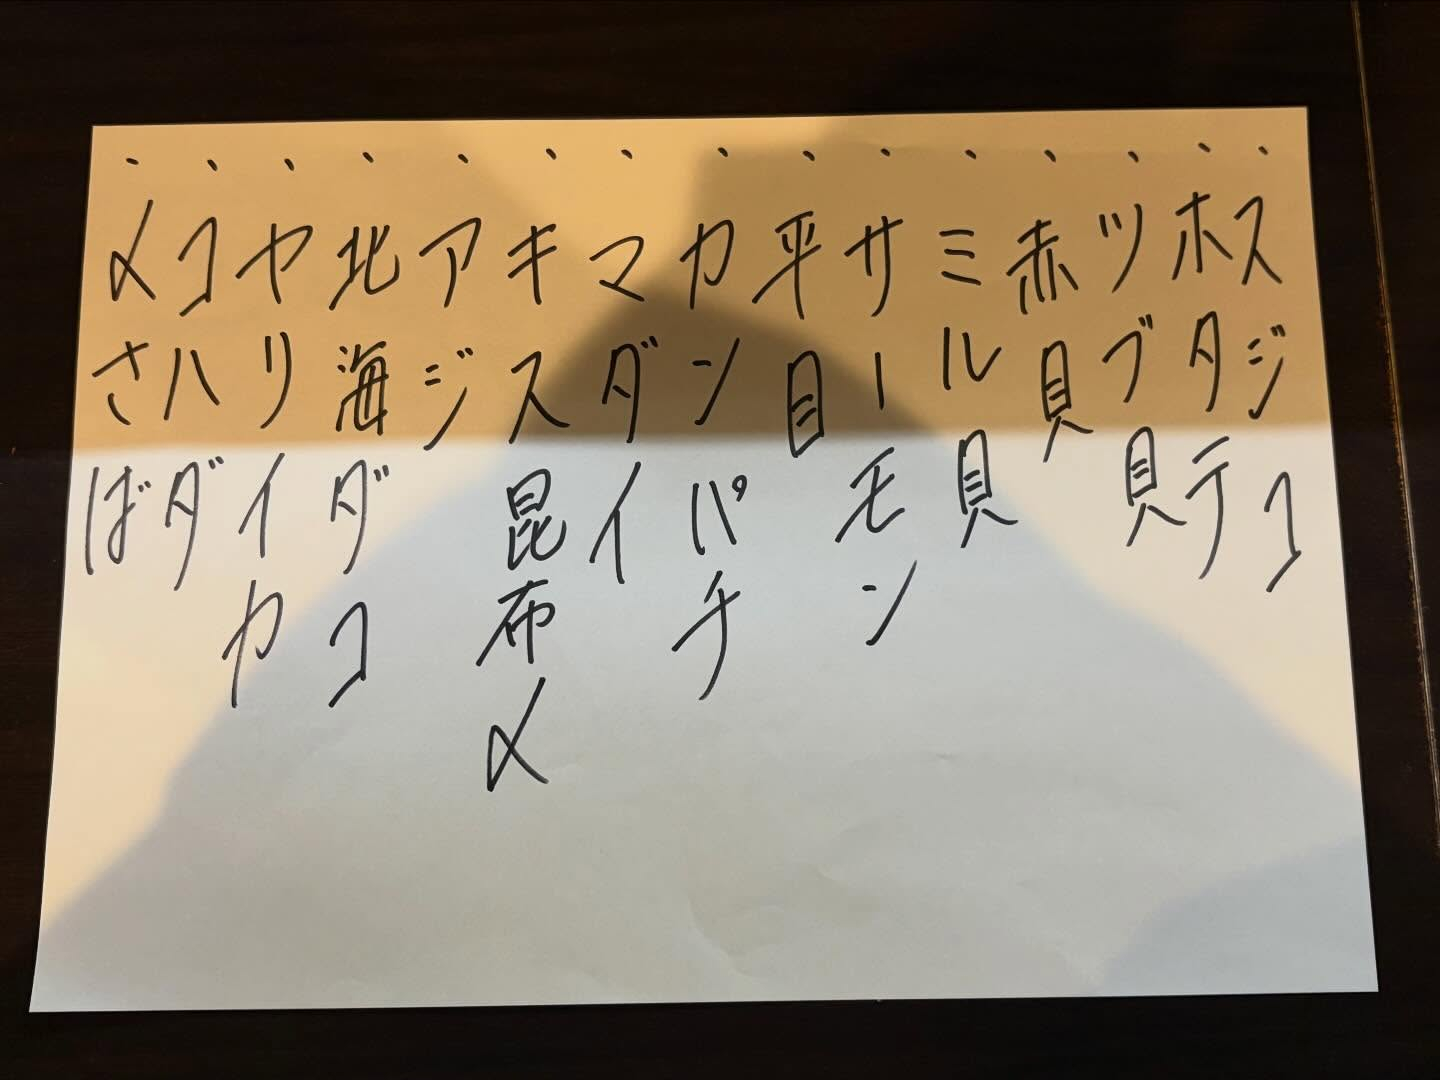 、スジコ
、ホタテ
、ツブ貝
、赤貝
、ミル貝
、サーモン
、平目
、カンパチ
、マダイ
、キス昆布〆
、アジ
、北海ダコ
、ヤリイカ
、コハダ
、〆さば